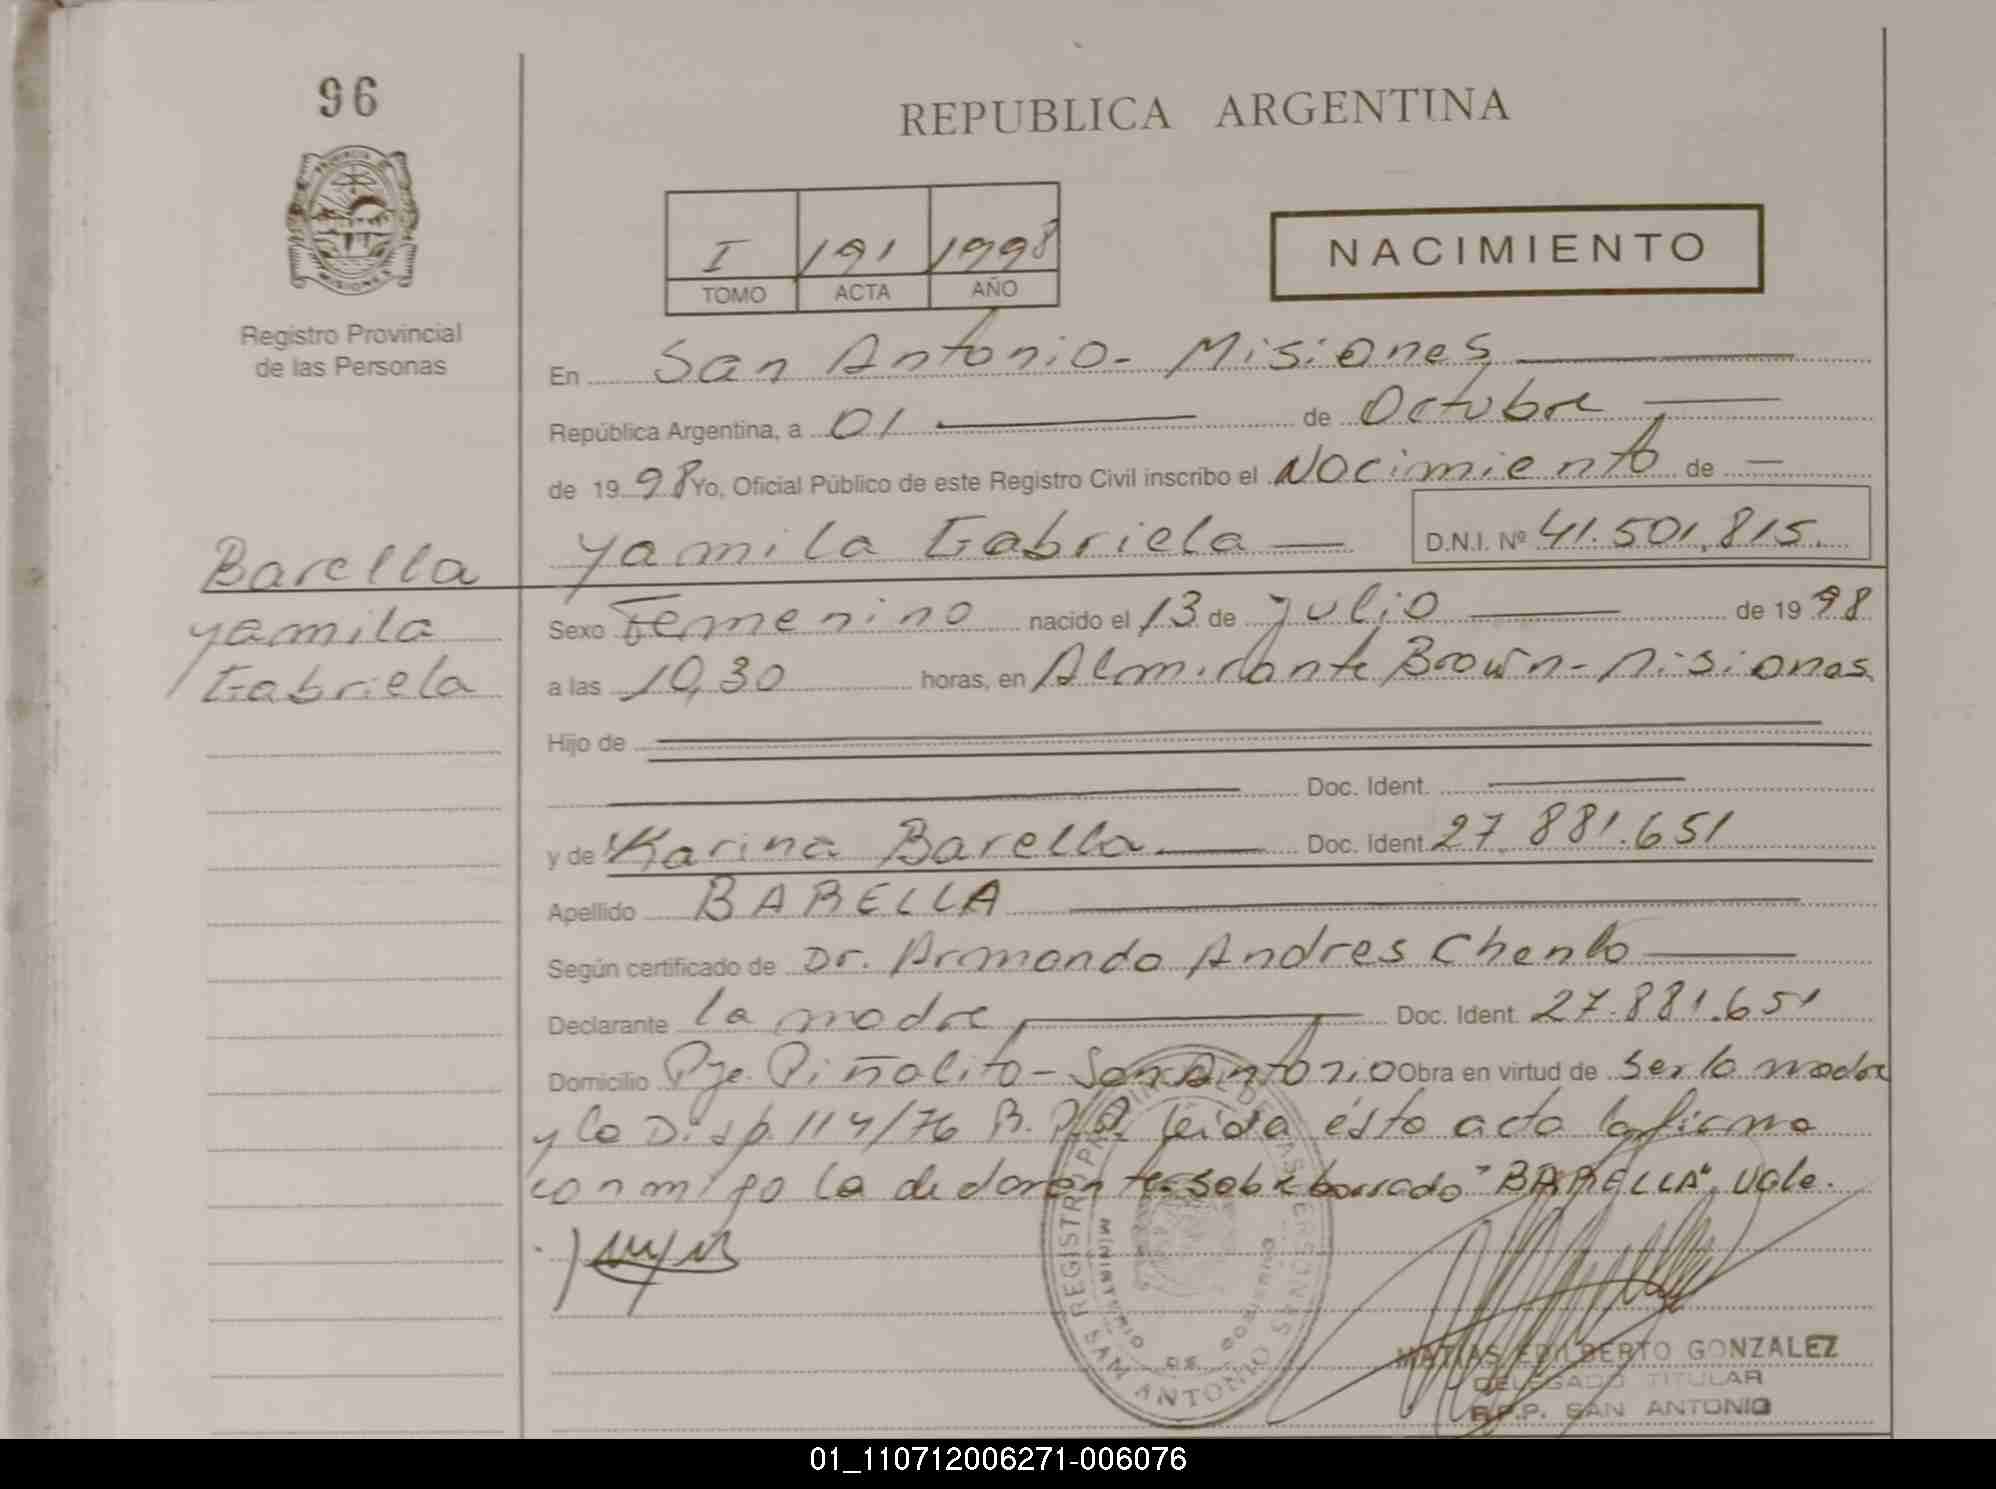 96
REPUBLICA ARGENTINA
PROVINCIA DE MISIONES
Registro Provincial
de las Personas
I 191 1998
TOMO ACTA AÑO
NACIMIENTO
En San Antonio - Misiones
República Argentina, a 01 de Octubre
de 1998 Yo, Oficial Público de este Registro Civil inscribo el Nacimiento de
Yamila Gabriela D.N.I. Nº 41.501.815.
Barella
Yamila
Gabriela
Sexo Femenino nacido el 13 de julio de 1998
a las 10,30 horas, en Almirante Brown - Misiones
Hijo de
Doc. Ident.
y de Karina Barella Doc. Ident. 27.881.651
Apellido BARELLA
Según certificado de Dr. Armando Andres Chenlo
Declarante la madre Doc. Ident. 27.881.651
Domicilio Pje. Piñalito - San Antonio Obra en virtud de ser la madre
y la Disp. 114/76 R.P.P. leída ésta acta la firma
conmigo la declarante sobre borrado "BARELLA". Vale.
REGISTRO PROVINCIAL DE LAS PERSONAS
MINISTERIO DE GOBIERNO
SAN ANTONIO
MATIAS EDILBERTO GONZALEZ
DELEGADO TITULAR
R.P.P. SAN ANTONIO
01_110712006271-006076